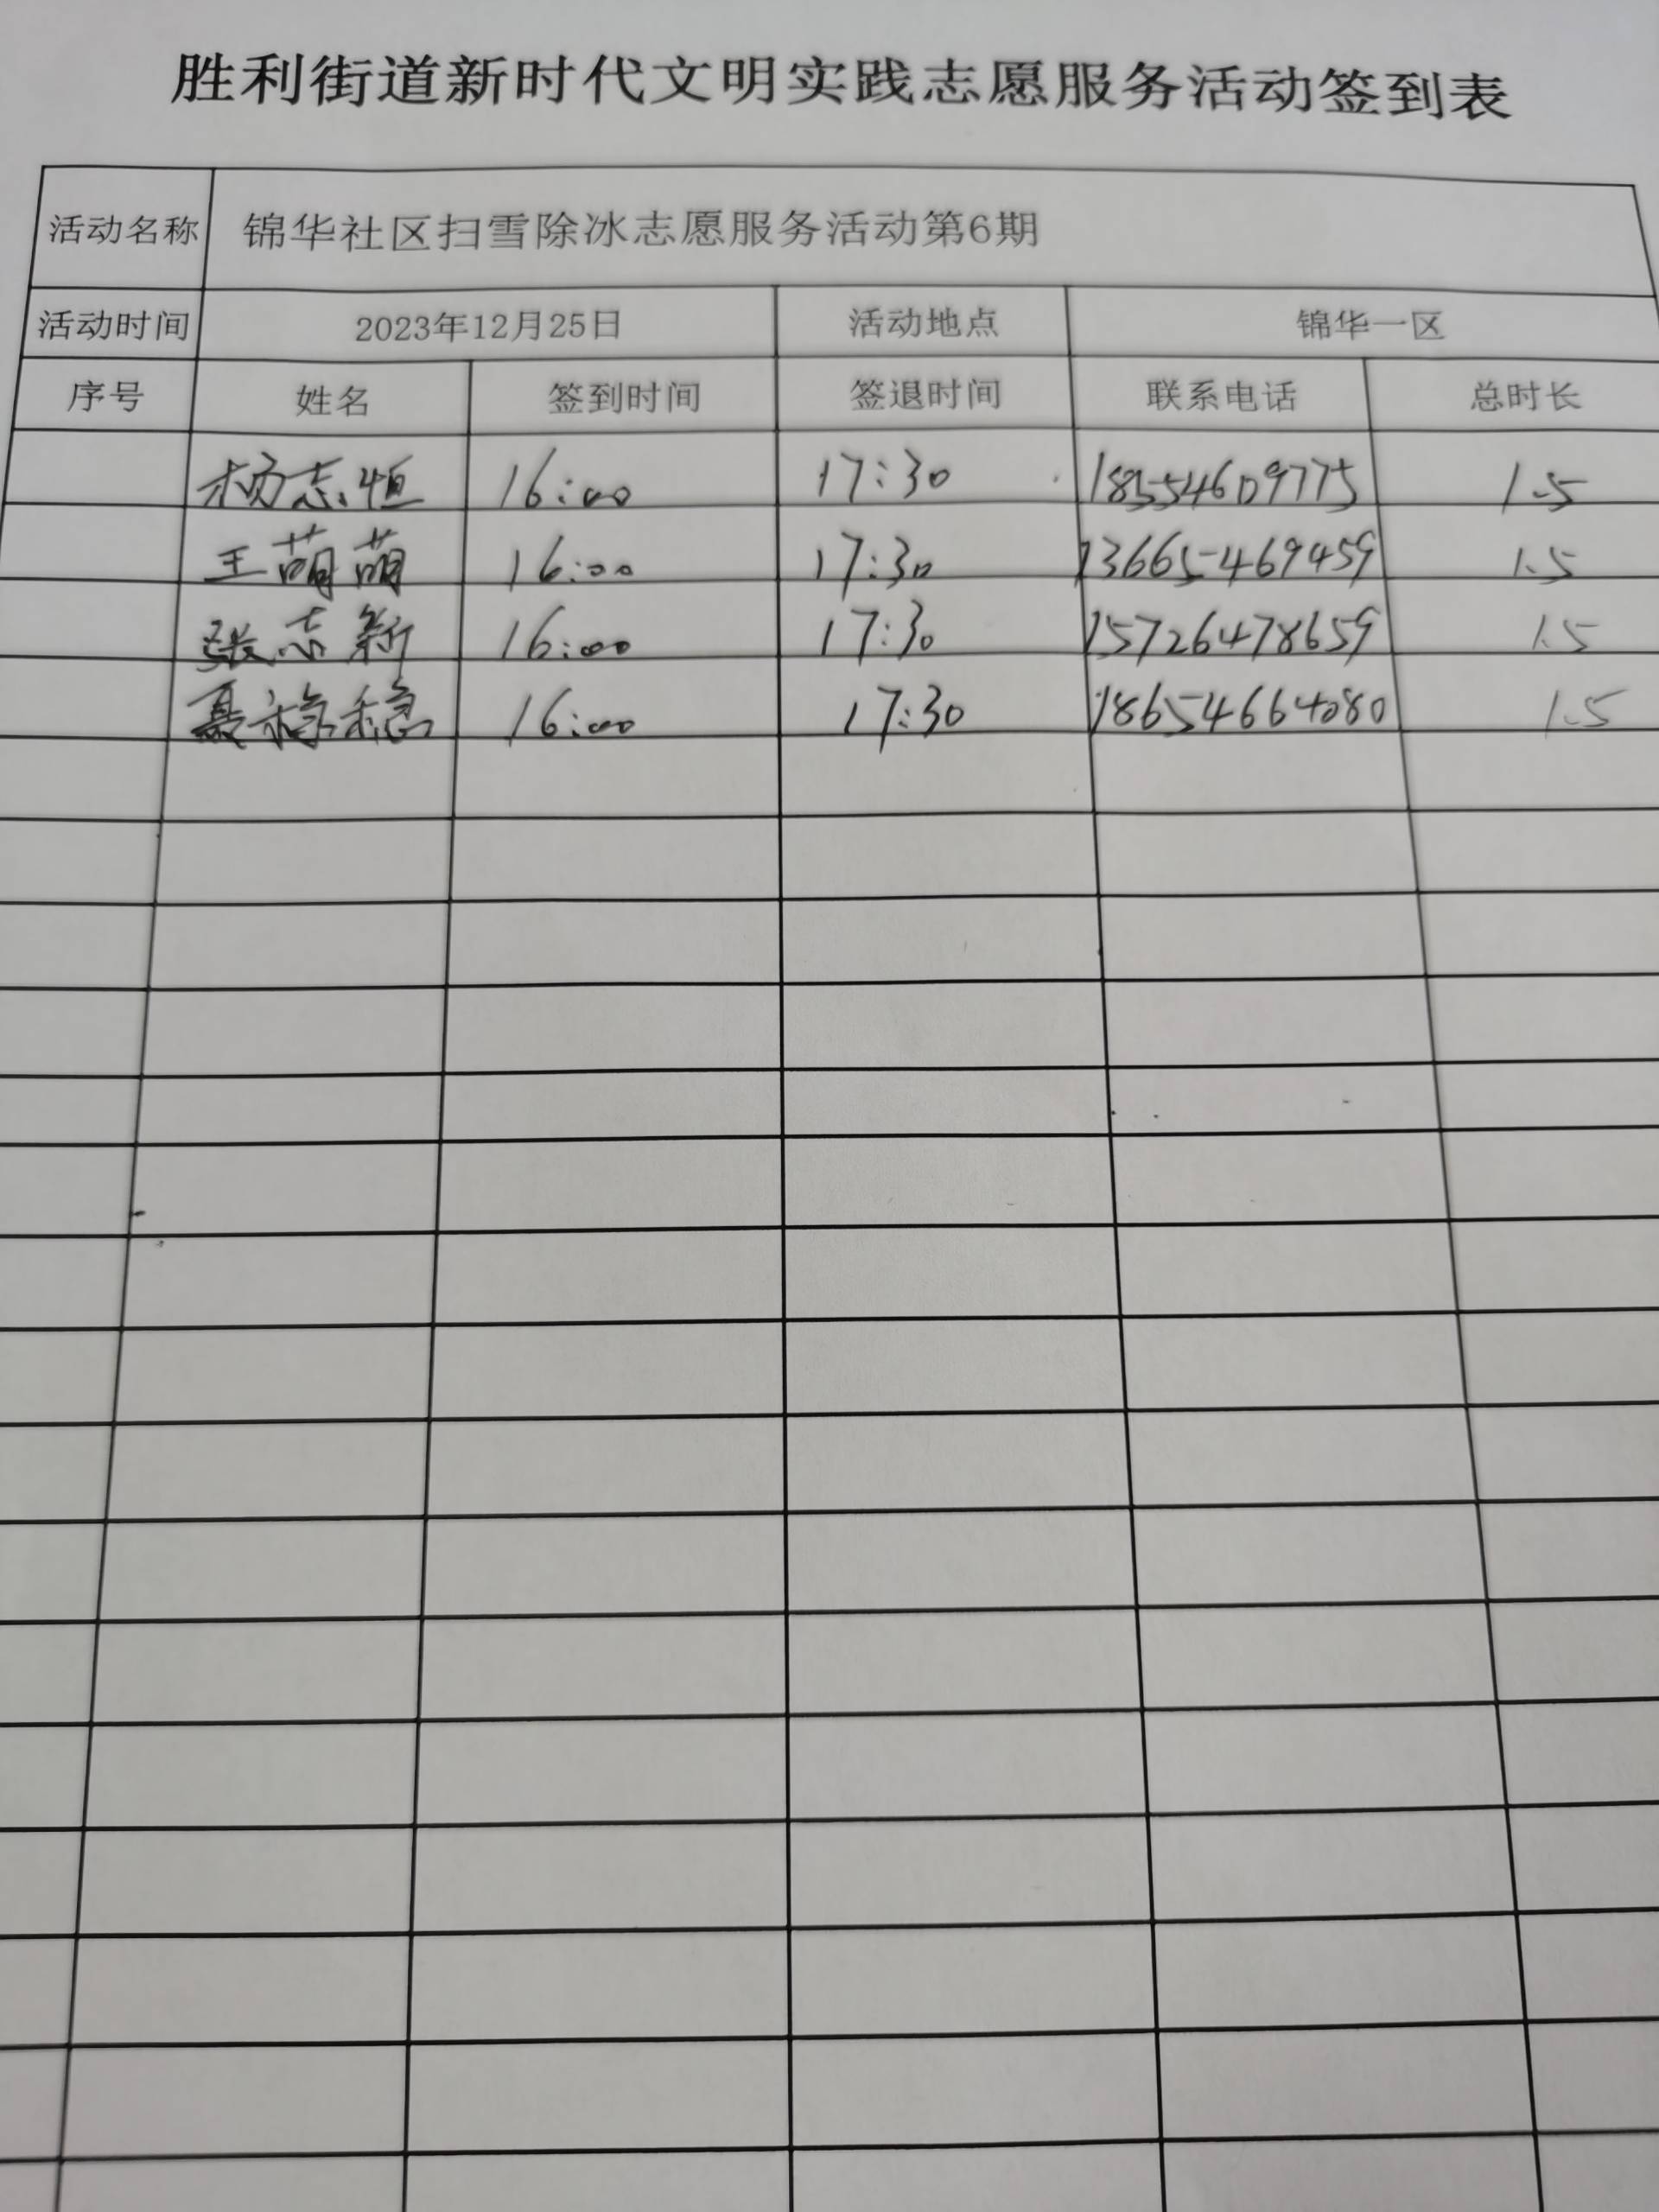 胜利街道新时代文明实践志愿服务活动签到表
活动名称 锦华社区扫雪除冰志愿服务活动第6期
活动时间 2023年12月25日 活动地点 锦华一区
序号 姓名 签到时间 签退时间 联系电话 总时长
杨志恒 16:00 17:30 18554609775 1.5
王萌萌 16:00 17:30 13665469459 1.5
张志新 16:00 17:30 15726478659 1.5
聂稳稳 16:00 17:30 18654664080 1.5